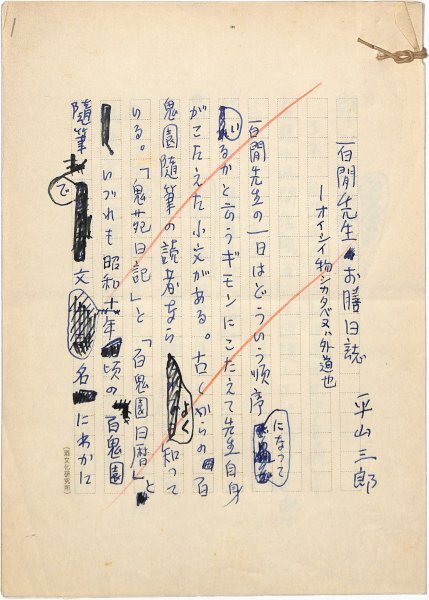 1
百閒先生お膳日誌
ーオイシイ物シカタベヌハ外道也
平山三郎
百閒先生の一日はどういう順序になって
いるかと云うギモンにこたえて先生自身
がこたえた小文がある。古くからの百
鬼園随筆の読者ならよく知って
いる。「鬼苑日記」と「百鬼園日暦」と
いづれも昭和十年頃の百鬼園
随筆で文名にわかに
(酒文化研究所)